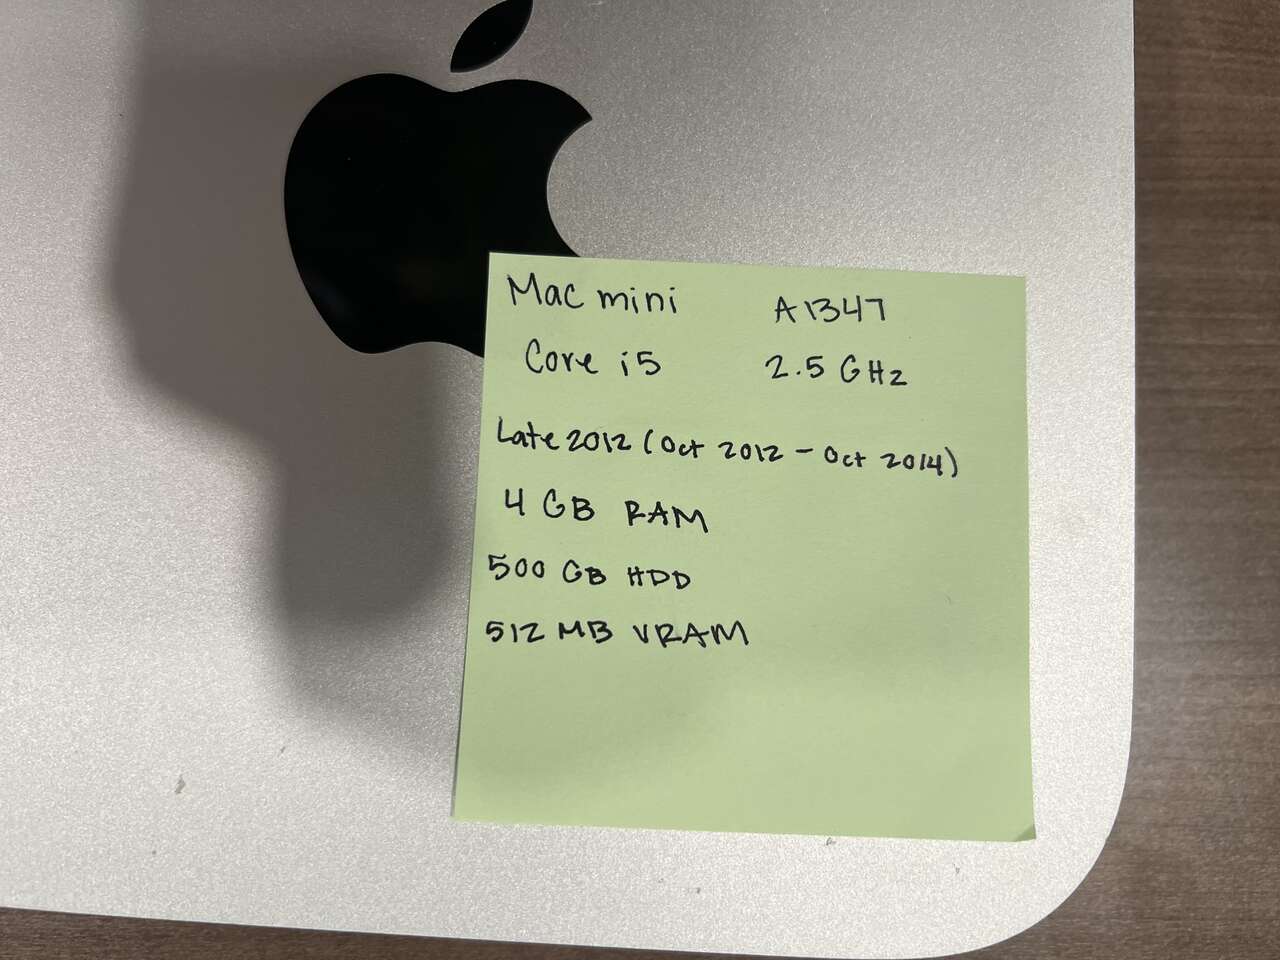 Mac mini A1347
Core i5 2.5 GHz
Late 2012 (Oct 2012 - Oct 2014)
4 GB RAM
500 GB HDD
512 MB VRAM